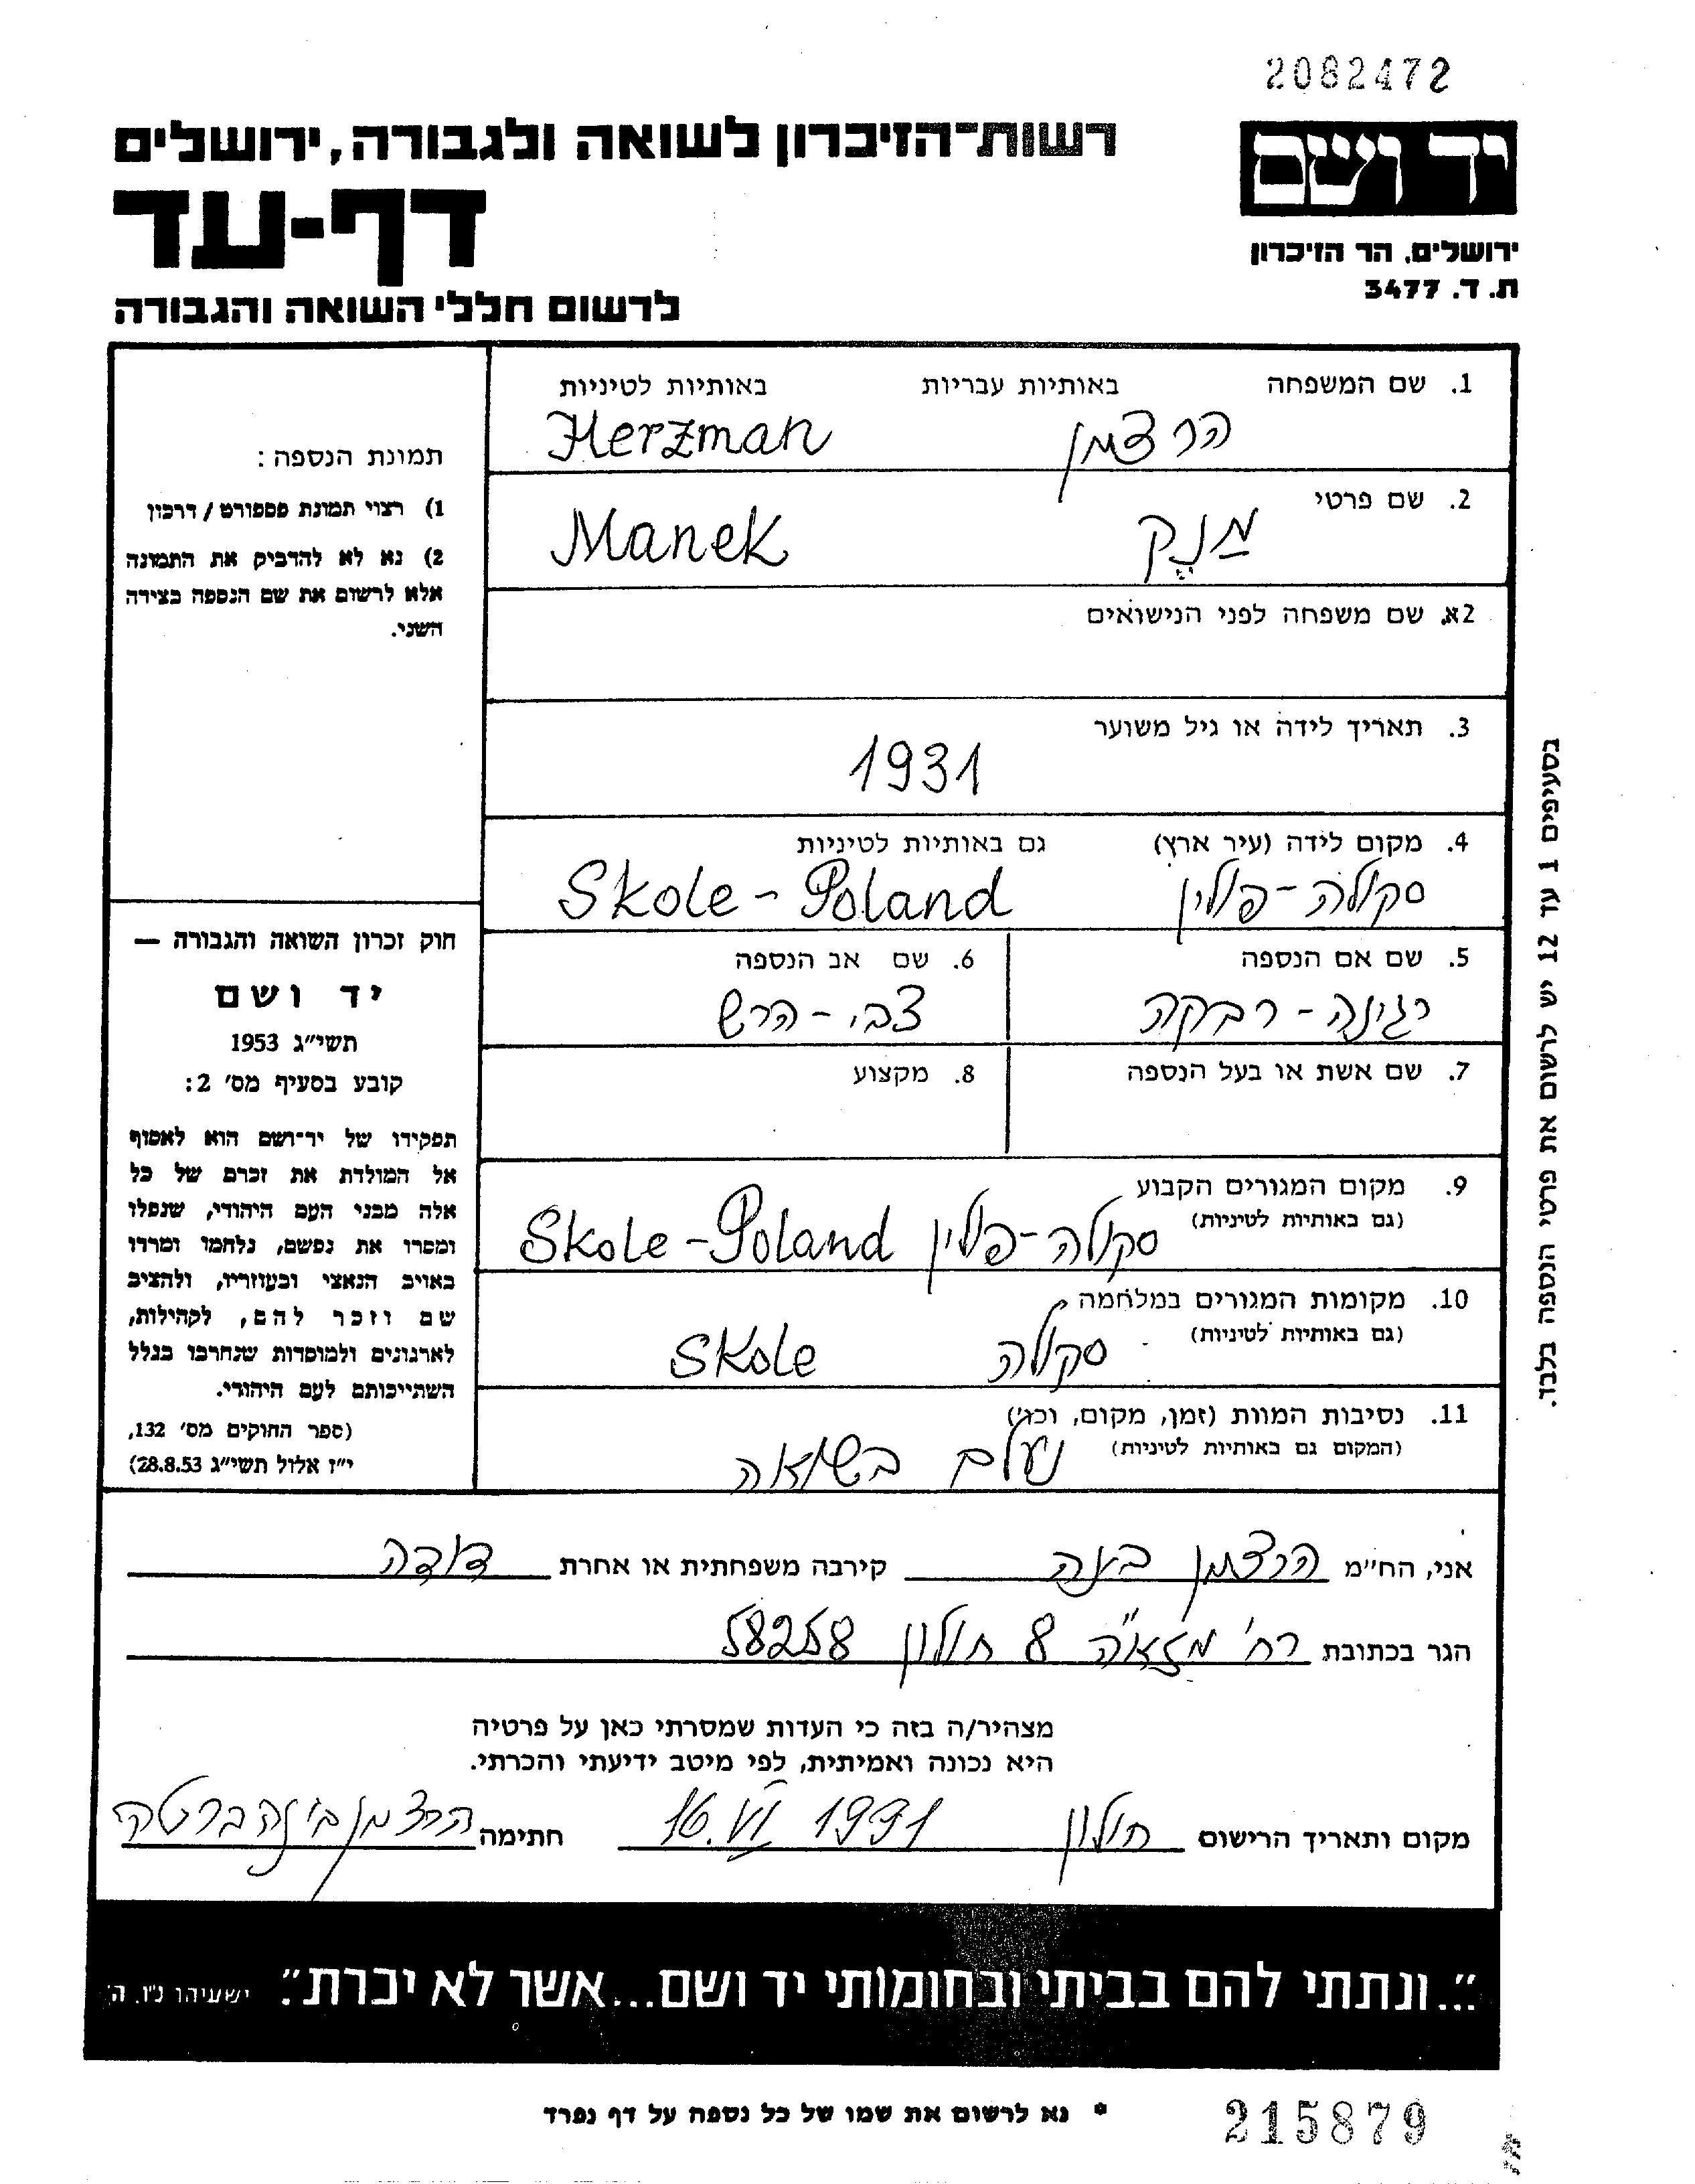 2082472
יד ושם
ירושלים, הר הזיכרון
ת. ד. 3477
רשות־הזיכרון לשואה ולגבורה, ירושלים
דף-עד
לרשום חללי השואה והגבורה
1. שם המשפחה באותיות עבריות באותיות לטיניות
הרצמן Herzman
2. שם פרטי
מנק Manek
2א. שם משפחה לפני הנישואים
3. תאריך לידה או גיל משוער
1931
4. מקום לידה (עיר ארץ) גם באותיות לטיניות
סקולה - פולין Skole - Poland
5. שם אם הנספה
רגינה - רבקה
6. שם אב הנספה
צבי - הרש
7. שם אשת או בעל הנספה
8. מקצוע
9. מקום המגורים הקבוע
(גם באותיות לטיניות)
סקולה - פולין Skole - Poland
10. מקומות המגורים במלחמה
(גם באותיות לטיניות)
סקולה Skole
11. נסיבות המוות (זמן, מקום, וכו')
(המקום גם באותיות לטיניות)
נעלם בשואה
תמונת הנספה:
1) רצוי תמונת פספורט / דרכון
2) נא לא להדביק את התמונה
אלא לרשום את שם הנספה בצידה
השני.
חוק זכרון השואה והגבורה —
יד ושם
תשי"ג 1953
קובע בסעיף מס' 2:
תפקידו של יד־ושם הוא לאסוף
אל המולדת את זכרם של כל
אלה מבני העם היהודי, שנפלו
ומסרו את נפשם, נלחמו ומרדו
באויב הנאצי ובעוזריו, ולהציב
שם וזכר להם, לקהילות,
לארגונים ולמוסדות שנחרבו בגלל
השתייכותם לעם היהודי.
(ספר החוקים מס' 132,
י"ז אלול תשי"ג 28.8.53)
בסעיפים 1 עד 12 יש לרשום את פרטי הנספה בלבד.
אני, הח"מ הרצמן בינה קירבה משפחתית או אחרת דודה
הגר בכתובת רח' מזא"ה 8 חולון 58258
מצהיר/ה בזה כי העדות שמסרתי כאן על פרטיה
היא נכונה ואמיתית, לפי מיטב ידיעתי והכרתי.
מקום ותאריך הרישום חולון 16.VI 1991 חתימה הרצמן בינה ברטה
"...ונתתי להם בביתי ובחומותי יד ושם...אשר לא יכרת." ישעיהו נ"ו, ה'
* נא לרשום את שמו של כל נספה על דף נפרד
215879